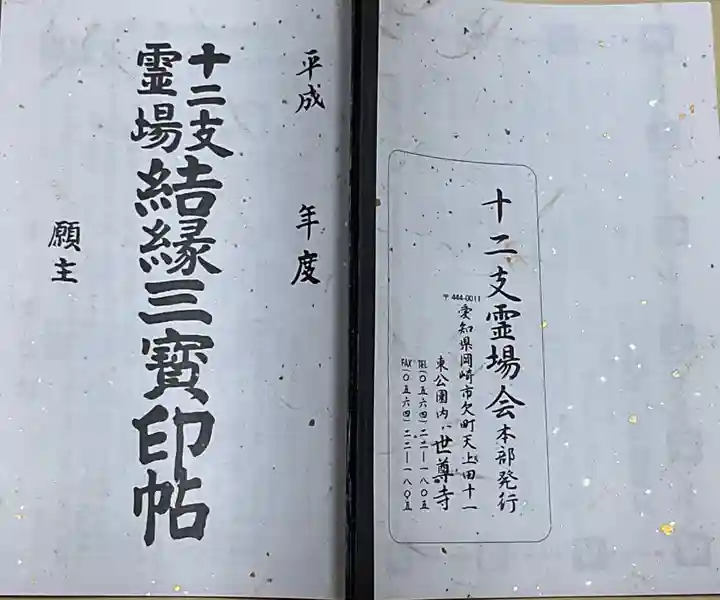 十二支霊場会本部発行
〒444-0011
愛知県岡崎市欠町天上田十一
東公園内、世尊寺
TEL(〇五六四)二二ー一八〇五
FAX(〇五六四)二二ー一八〇五
平成 年度
十二支
霊場
結縁三寳印帖
願主